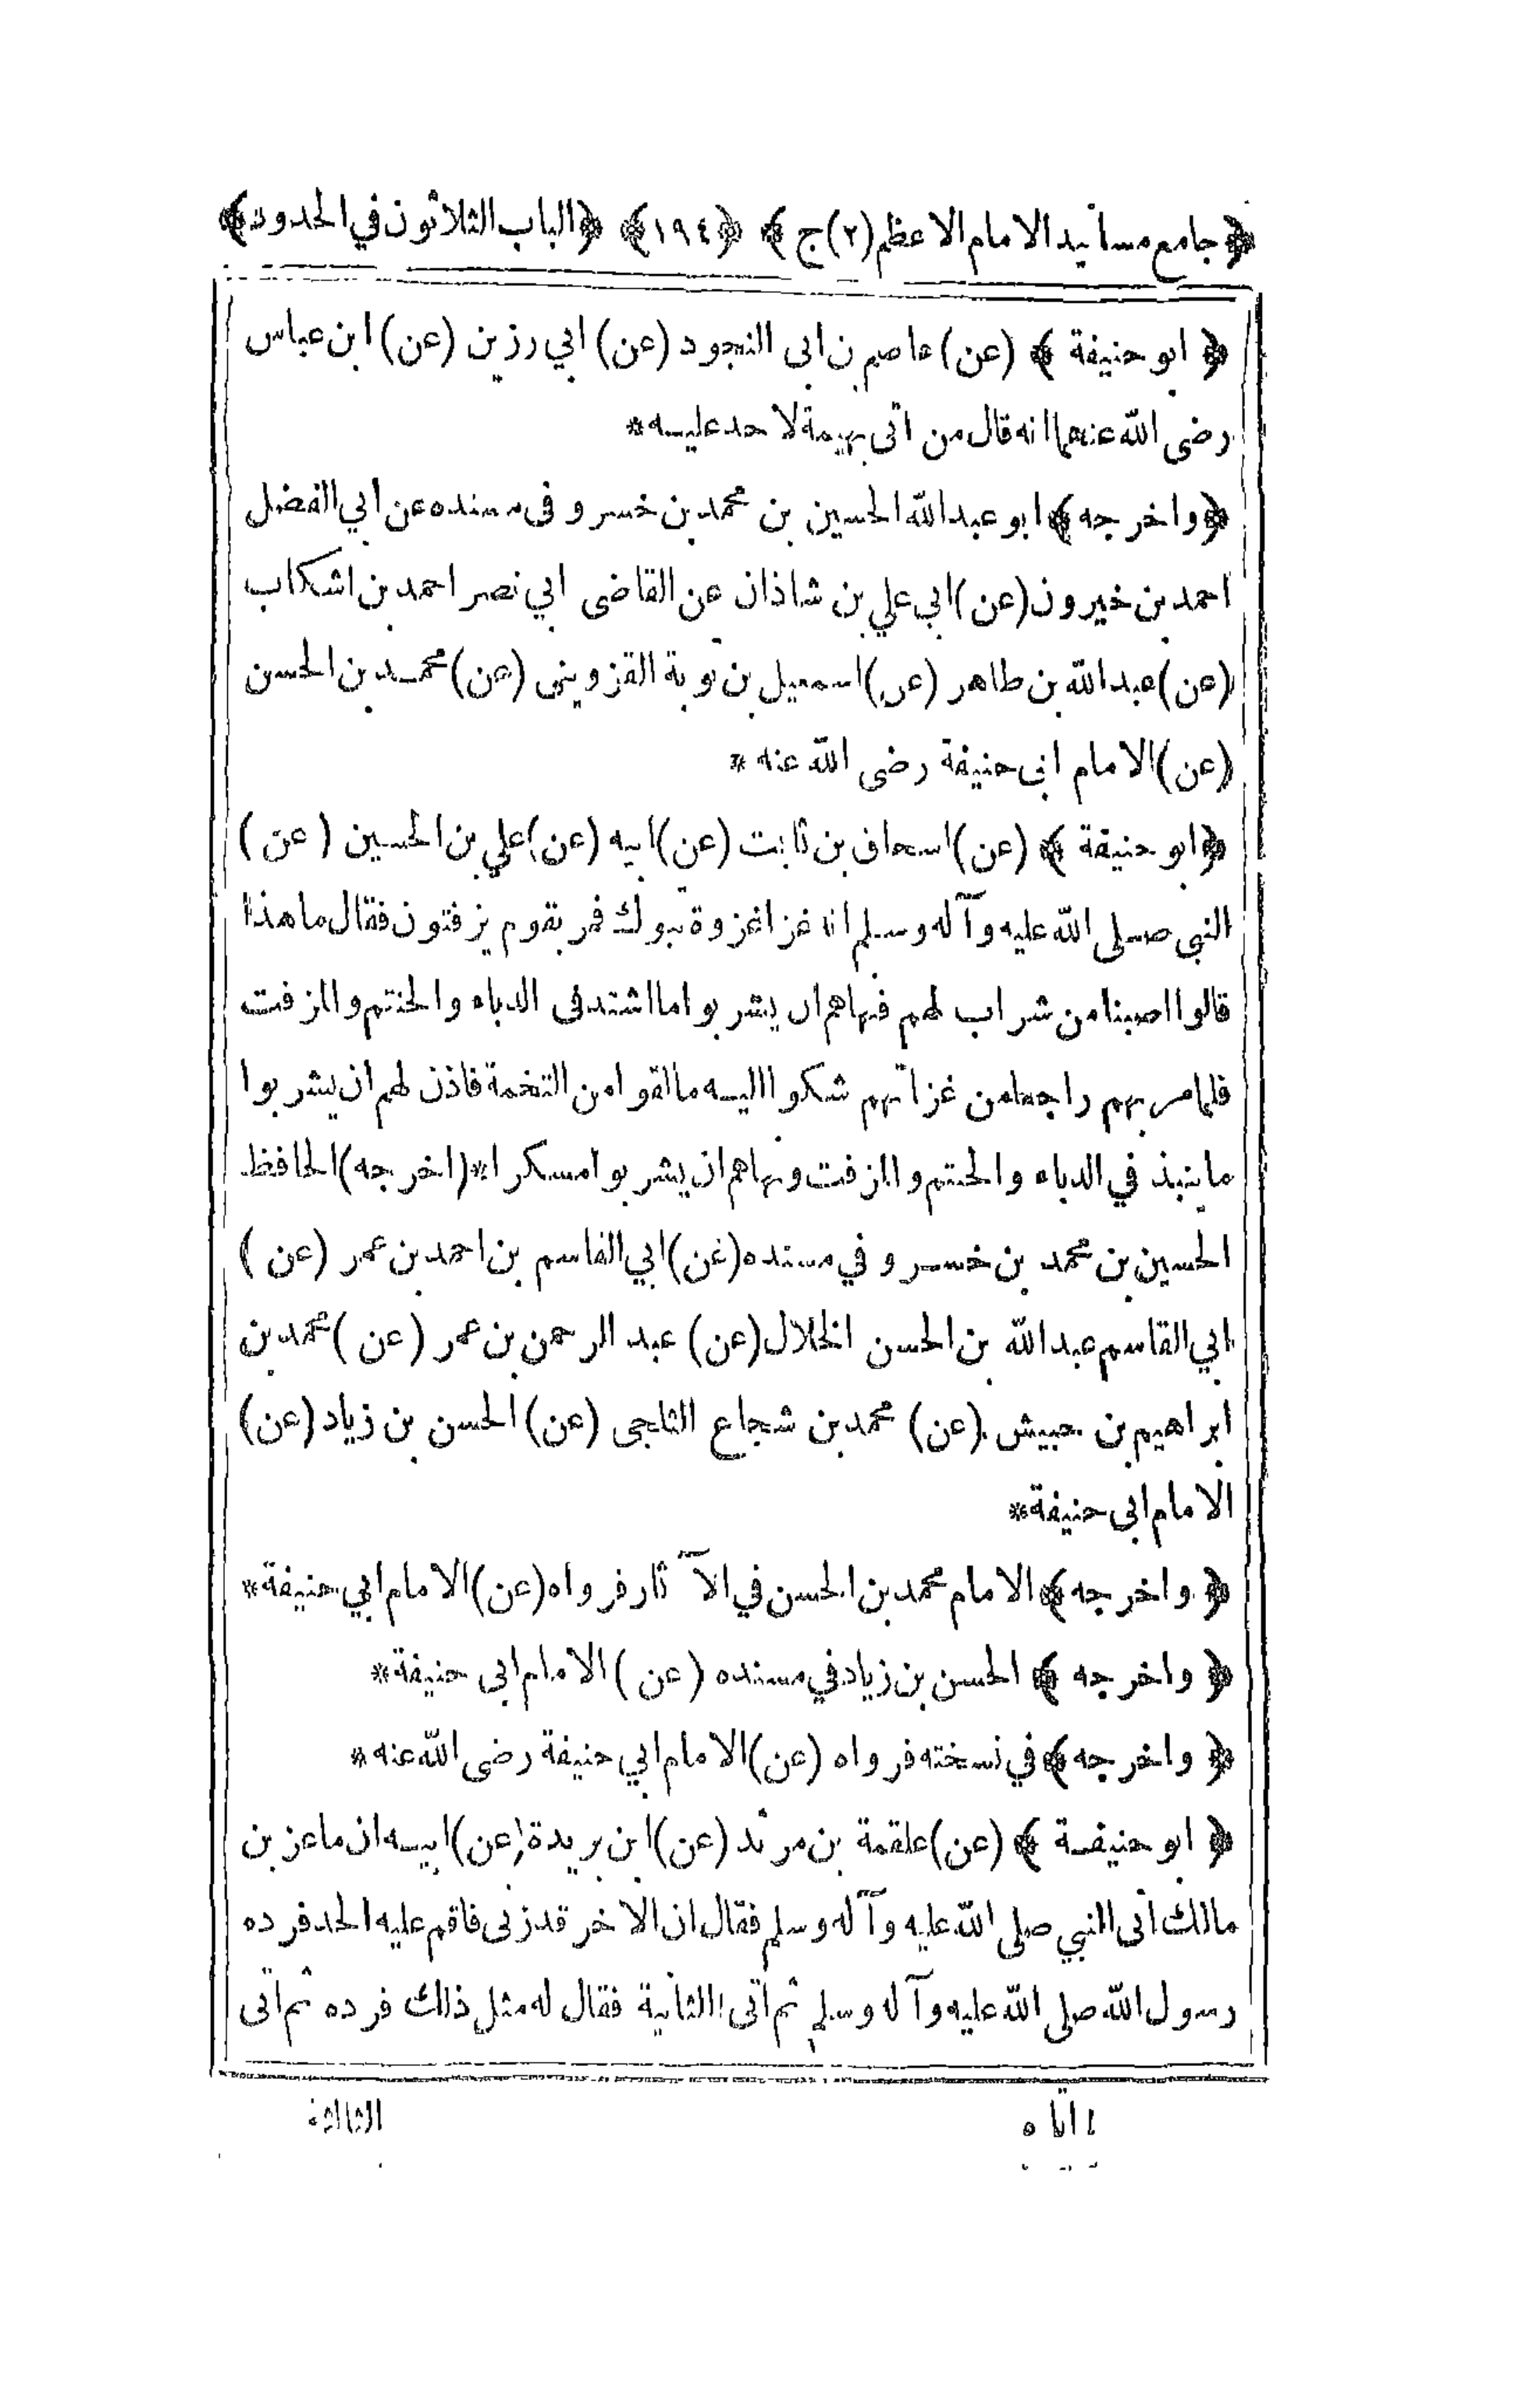 ﴿جامع مسانيد الامام الاعظم (٢) ج﴾ ﴿١٩٤﴾ ﴿الباب الثلاثون في الحدود﴾
﴿ابو حنيفة﴾ (عن) عاصم بن ابى النجود (عن) ابي رزين (عن) ابن عباس
رضى الله عنهما انه قال من اتى بهيمة لا حد عليه *
﴿واخرجه﴾ ابو عبد الله الحسين بن محمد بن خسرو فى مسنده عن ابي الفضل
احمد بن خيرون (عن) ابي علي بن شاذان عن القاضى ابي نصر احمد بن اشكاب
(عن) عبد الله بن طاهر (عن) اسمعيل بن توبة القزوينى (عن) محمد بن الحسن
(عن) الامام ابى حنيفة رضى الله عنه *
﴿ابو حنيفة﴾ (عن) اسحاق بن ثابت (عن) ابيه (عن) علي بن الحسين (عن)
النبي صلى الله عليه وآله وسلم انه غزا غزوة تبوك فمر بقوم يزفتون فقال ما هذا
قالوا اصبنا من شراب لهم فنهاهم ان يشربوا ما اشتد فى الدباء والحنتم والمزفت
فلما مر بهم راجعا من غزاتهم شكوا اليه ما لقوا من التخمة فاذن لهم ان يشربوا
ما ينبذ في الدباء والحنتم والمزفت ونهاهم ان يشربوا مسكرا * (اخرجه) الحافظ
الحسين بن محمد بن خسرو في مسنده (عن) ابي القاسم بن احمد بن عمر (عن)
ابي القاسم عبد الله بن الحسن الخلال (عن) عبد الرحمن بن عمر (عن) محمد بن
ابراهيم بن حبيش (عن) محمد بن شجاع الثلجى (عن) الحسن بن زياد (عن)
الامام ابى حنيفة *
﴿واخرجه﴾ الامام محمد بن الحسن في الآثار فرواه (عن) الامام ابي حنيفة *
﴿واخرجه﴾ الحسن بن زياد في مسنده (عن) الامام ابى حنيفة *
﴿واخرجه﴾ في نسخته فرواه (عن) الامام ابي حنيفة رضى الله عنه *
﴿ابو حنيفة﴾ (عن) علقمة بن مرثد (عن) ابن بريدة (عن) ابيه ان ماعز بن
مالك اتى النبي صلى الله عليه وآله وسلم فقال ان الاخر قد زنى فاقم عليه الحد فرده
رسول الله صلى الله عليه وآله وسلم ثم أتى الثانية فقال له مثل ذلك فرده ثم اتى
الثالثة